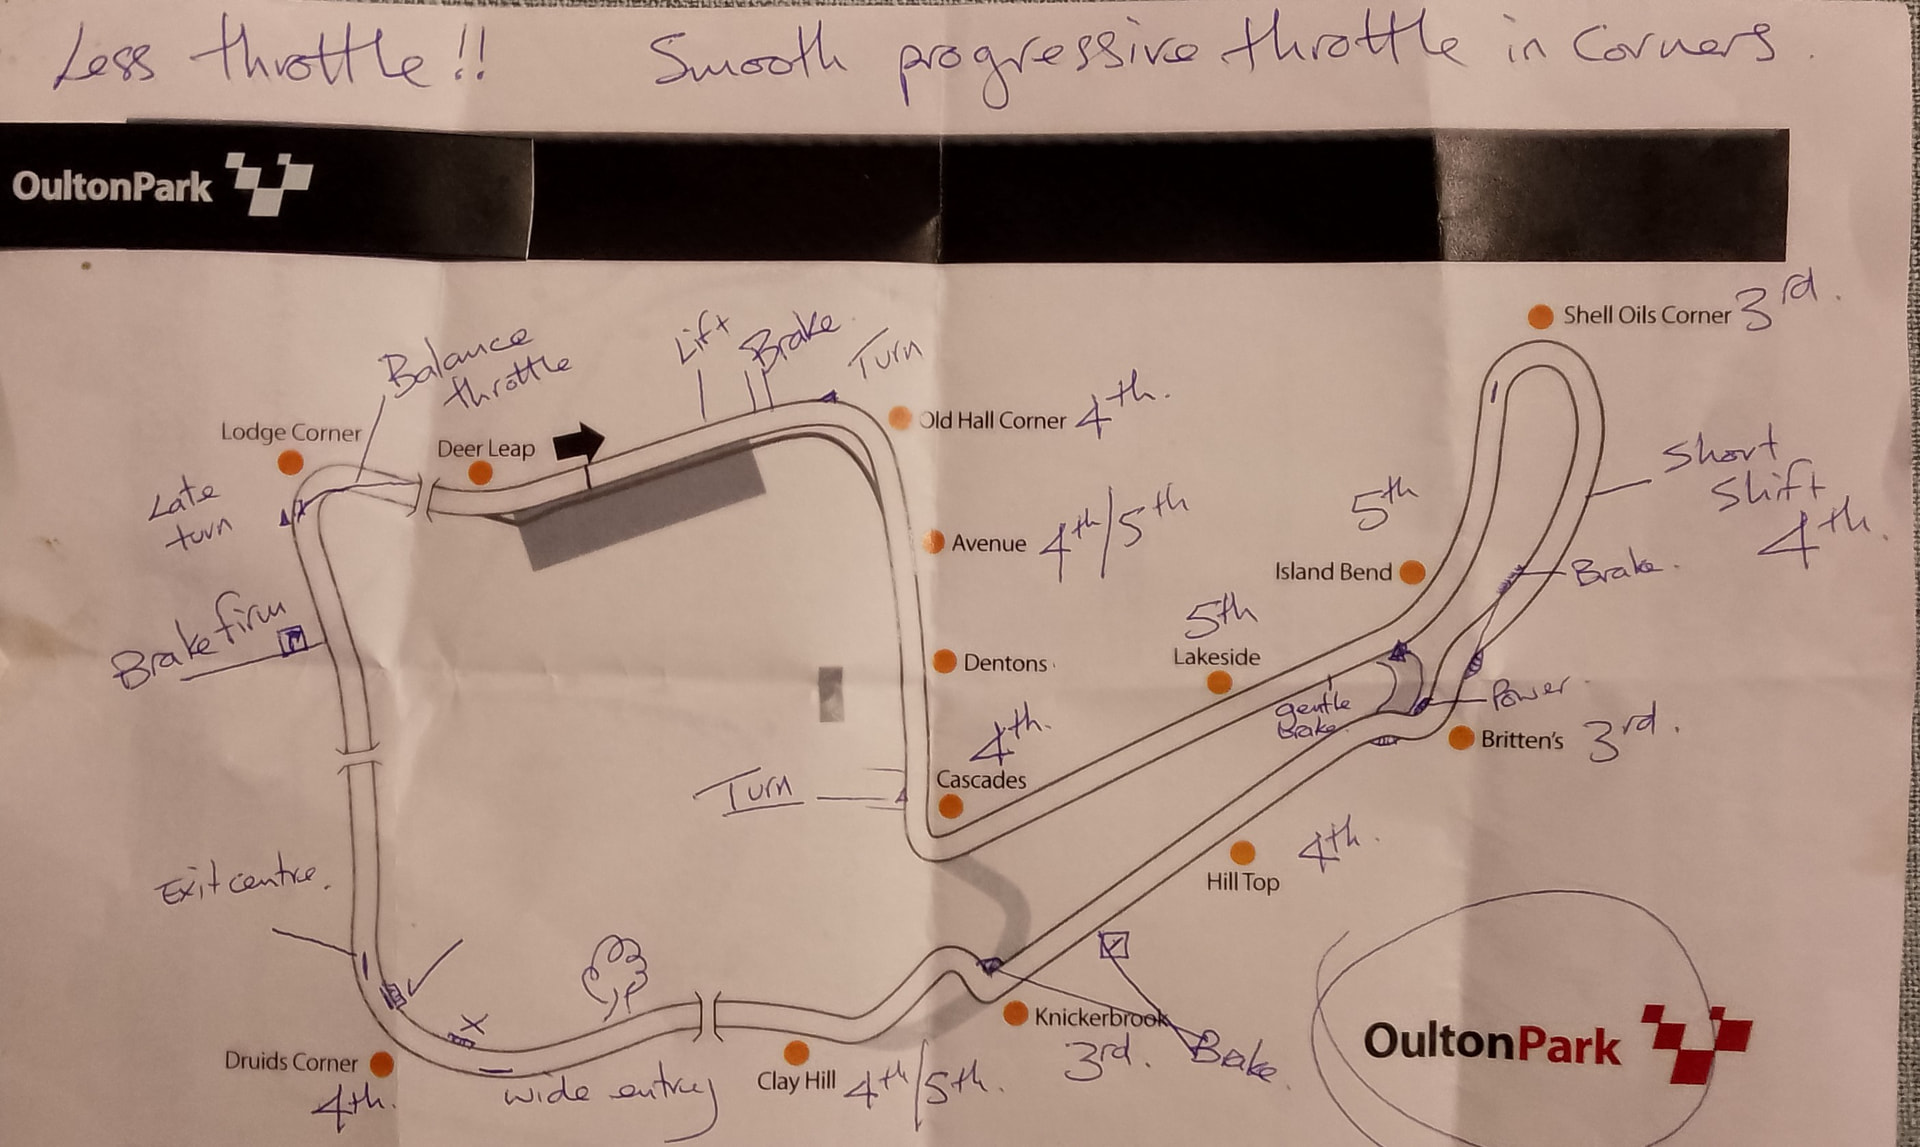 Less throttle!! Smooth progressive throttle in corners.
OultonPark
Shell Oils Corner 3rd.
Balance
throttle
Lift
Brake
Turn
Old Hall Corner 4th.
Lodge Corner
Deer Leap
Late
turn
Short
Shift
4th.
5th
Avenue 4th/5th
Island Bend
Brake.
Brake firm
5th
Lakeside
Dentons
gentle
Brake
Power
Britten's 3rd.
4th.
Cascades
Turn
Hill Top
4th.
Exit centre.
Knickerbrook
3rd.
Brake.
Druids Corner
4th.
wide entry
Clay Hill 4th/5th.
OultonPark